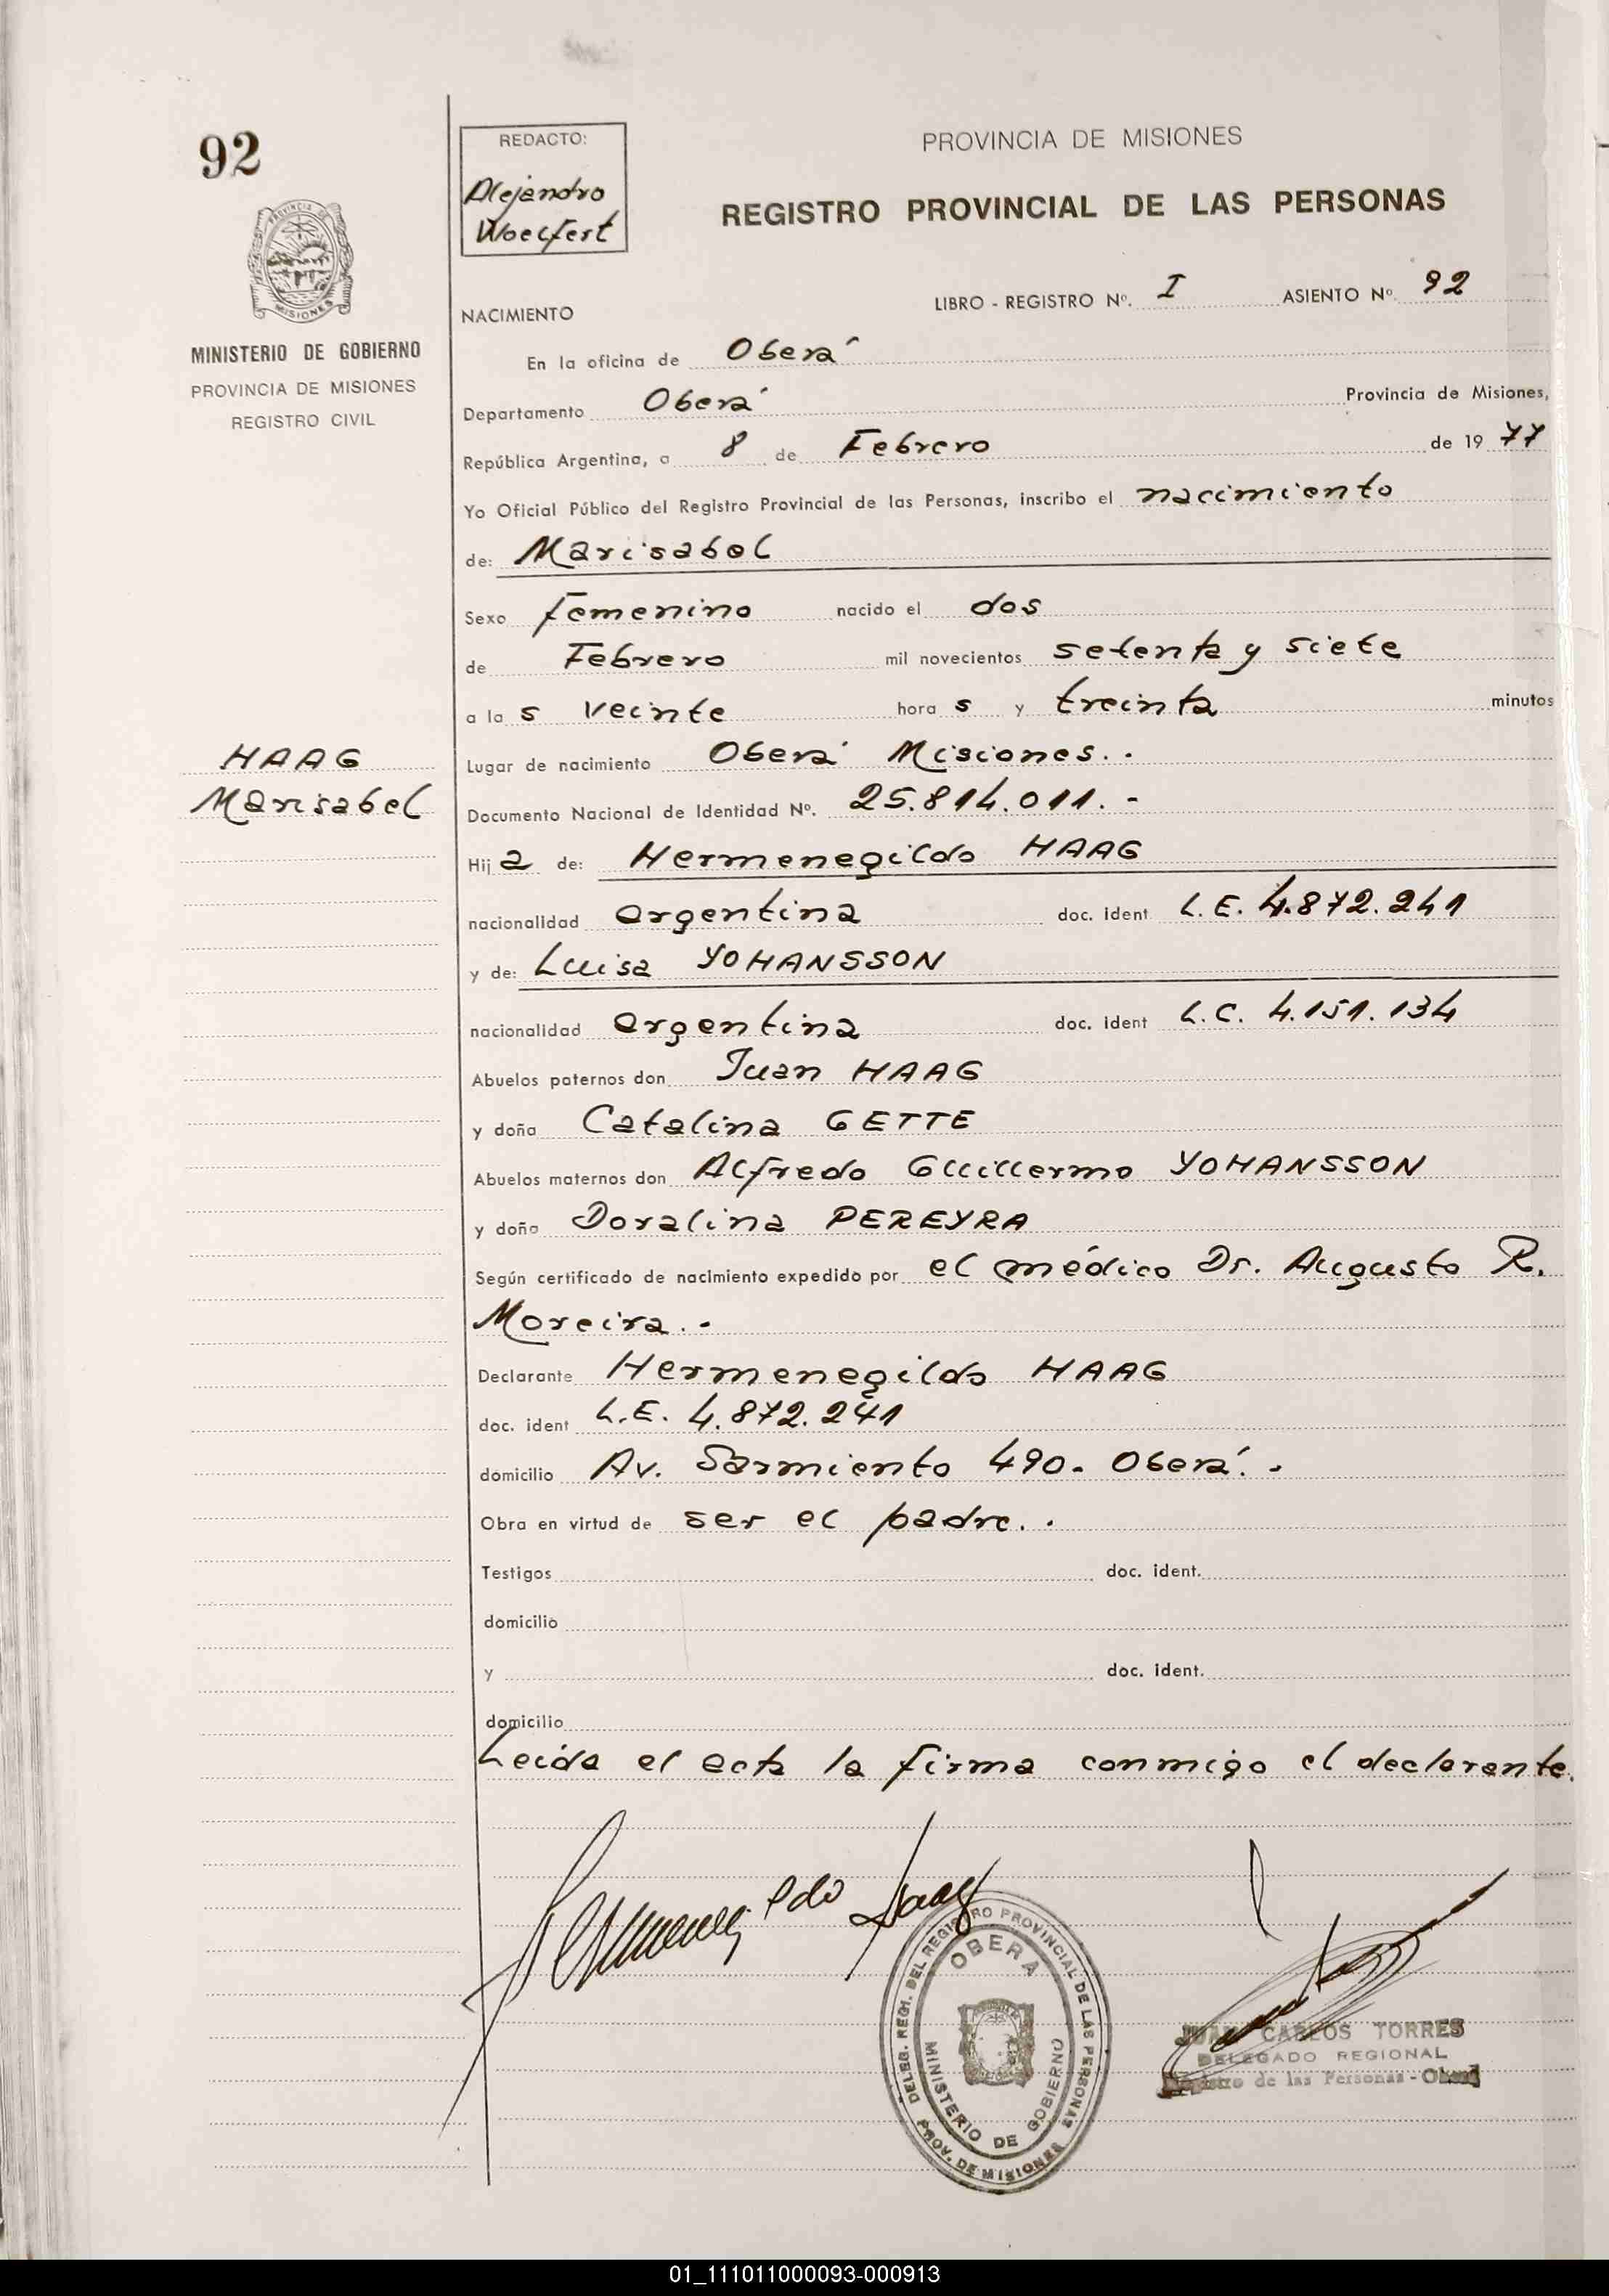 92
PROVINCIA DE MISIONES
MINISTERIO DE GOBIERNO
PROVINCIA DE MISIONES
REGISTRO CIVIL
HAAG
Marisabel
REDACTO:
Alejandro
Woelfert
PROVINCIA DE MISIONES
REGISTRO PROVINCIAL DE LAS PERSONAS
LIBRO - REGISTRO Nº. I ASIENTO Nº. 92
NACIMIENTO
En la oficina de Oberá
Departamento Oberá Provincia de Misiones,
República Argentina, a 8 de Febrero de 19 77
Yo Oficial Público del Registro Provincial de las Personas, inscribo el nacimiento
de: Marisabel
Sexo femenino nacido el dos
de Febrero mil novecientos setenta y siete
a la s veinte hora s y treinta minutos
Lugar de nacimiento Oberá Misiones.-
Documento Nacional de Identidad Nº. 25.814.011.-
Hij a de: Hermenegildo HAAG
nacionalidad argentina doc. ident L.E. 4.872.241
y de: Luisa YOHANSSON
nacionalidad argentina doc. ident L.C. 4.151.134
Abuelos paternos don Juan HAAG
y doña Catalina GETTE
Abuelos maternos don Alfredo Guillermo YOHANSSON
y doña Doralina PEREYRA
Según certificado de nacimiento expedido por el médico Dr. Augusto R.
Moreira.-
Declarante Hermenegildo HAAG
doc. ident L.E. 4.872.241
domicilio Av. Sarmiento 490. Oberá.-
Obra en virtud de ser el padre.-
Testigos doc. ident.
domicilio
y doc. ident.
domicilio
Leida el acta la firma conmigo el declarante.
Hermenegildo Haag
DELEG. REGI. DEL REGISTRO PROVINCIAL DE LAS PERSONAS
OBERA
MINISTERIO DE GOBIERNO
PROV. DE MISIONES
JUAN CARLOS TORRES
DELEGADO REGIONAL
Registro de las Personas - Oberá
01_111011000093-000913